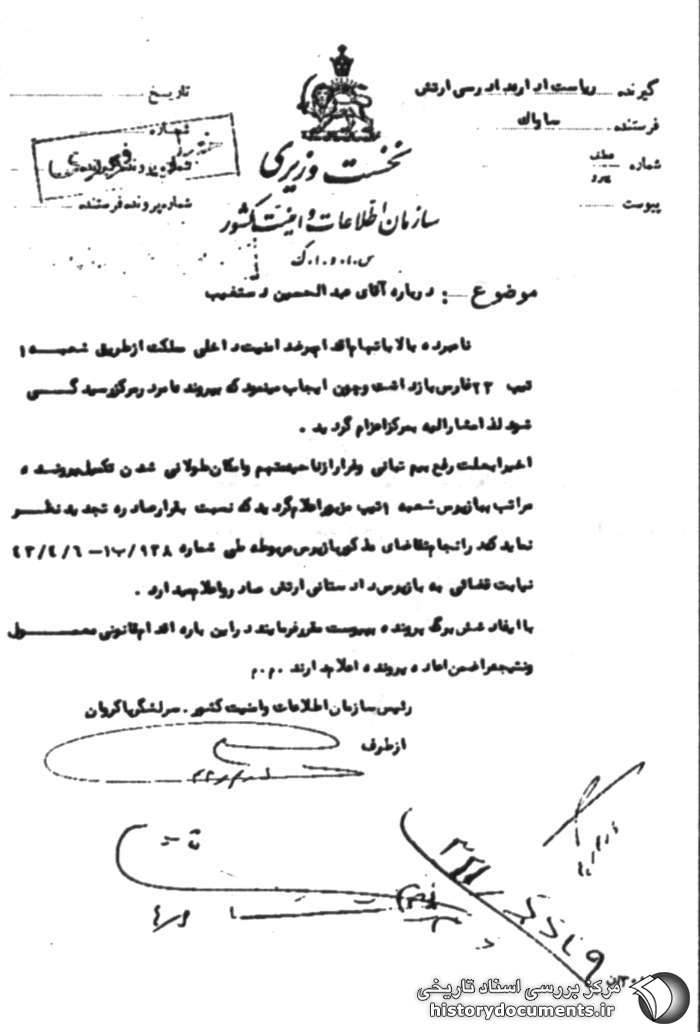 گیرنده ریاست اداره دادرسی ارتش
فرستنده ساواک
شماره عطف پیرو
پیوست
تاریخ
شماره
شماره پرونده گیرنده
شماره پرونده فرستنده
خیلی فوری
نخست وزیری
سازمان اطلاعات و امنیت کشور
س.ا.و.ا.ک
موضوع : درباره آقای عبدالحسین دستغیب
نامبرده بالا باتهام اقدام برضد امنیت داخلی مملکت از طریق شعبه ۱
تیپ ۲۳ فارس بازداشت و چون ایجاب مینمود که پرونده نامبرده در مرکز رسیدگی
شود لذا مشارالیه بمرکز اعزام گردید .
اخیرا بعلت رفع بیم تبانی و فرار از ناحیه متهم و امکان طولانی شدن تکمیل پرونده
مراتب ببازپرس شعبه ۱ تیپ مزبور اعلام گردید که نسبت بقرار صادره تجدید نظر
نماید که در انجام تقاضای مذکور بازپرس مربوطه طی شماره ۹۳۸/ب۱-۴۳/۴/۶
نیابت قضائی به بازپرس دادستانی ارتش صادر و اعلام میدارد .
با ایفاد شش برگ پرونده بپیوست مقرر فرمایند در این باره اقدام قانونی معمول
و نتیجه را ضمن اعاده پرونده اعلام دارند .م.م
رئیس سازمان اطلاعات و امنیت کشور . سرلشگر پاکروان
از طرف
مرکز بررسی اسناد تاریخی
historydocuments.ir